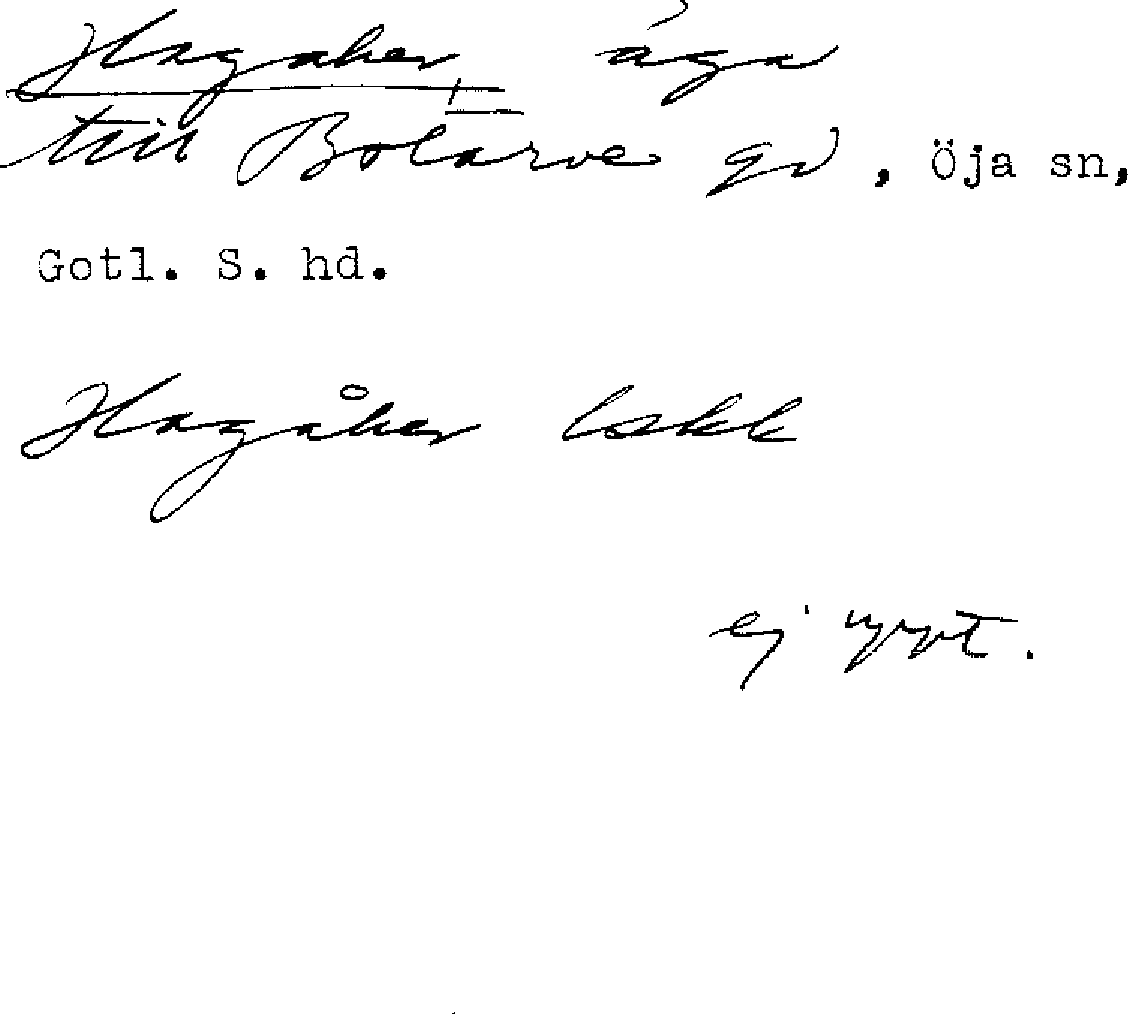 Hagåker äga
till Botarve gd, Öja sn,
Gotl. S. hd.
Hagåker Lskk
ej uppt.